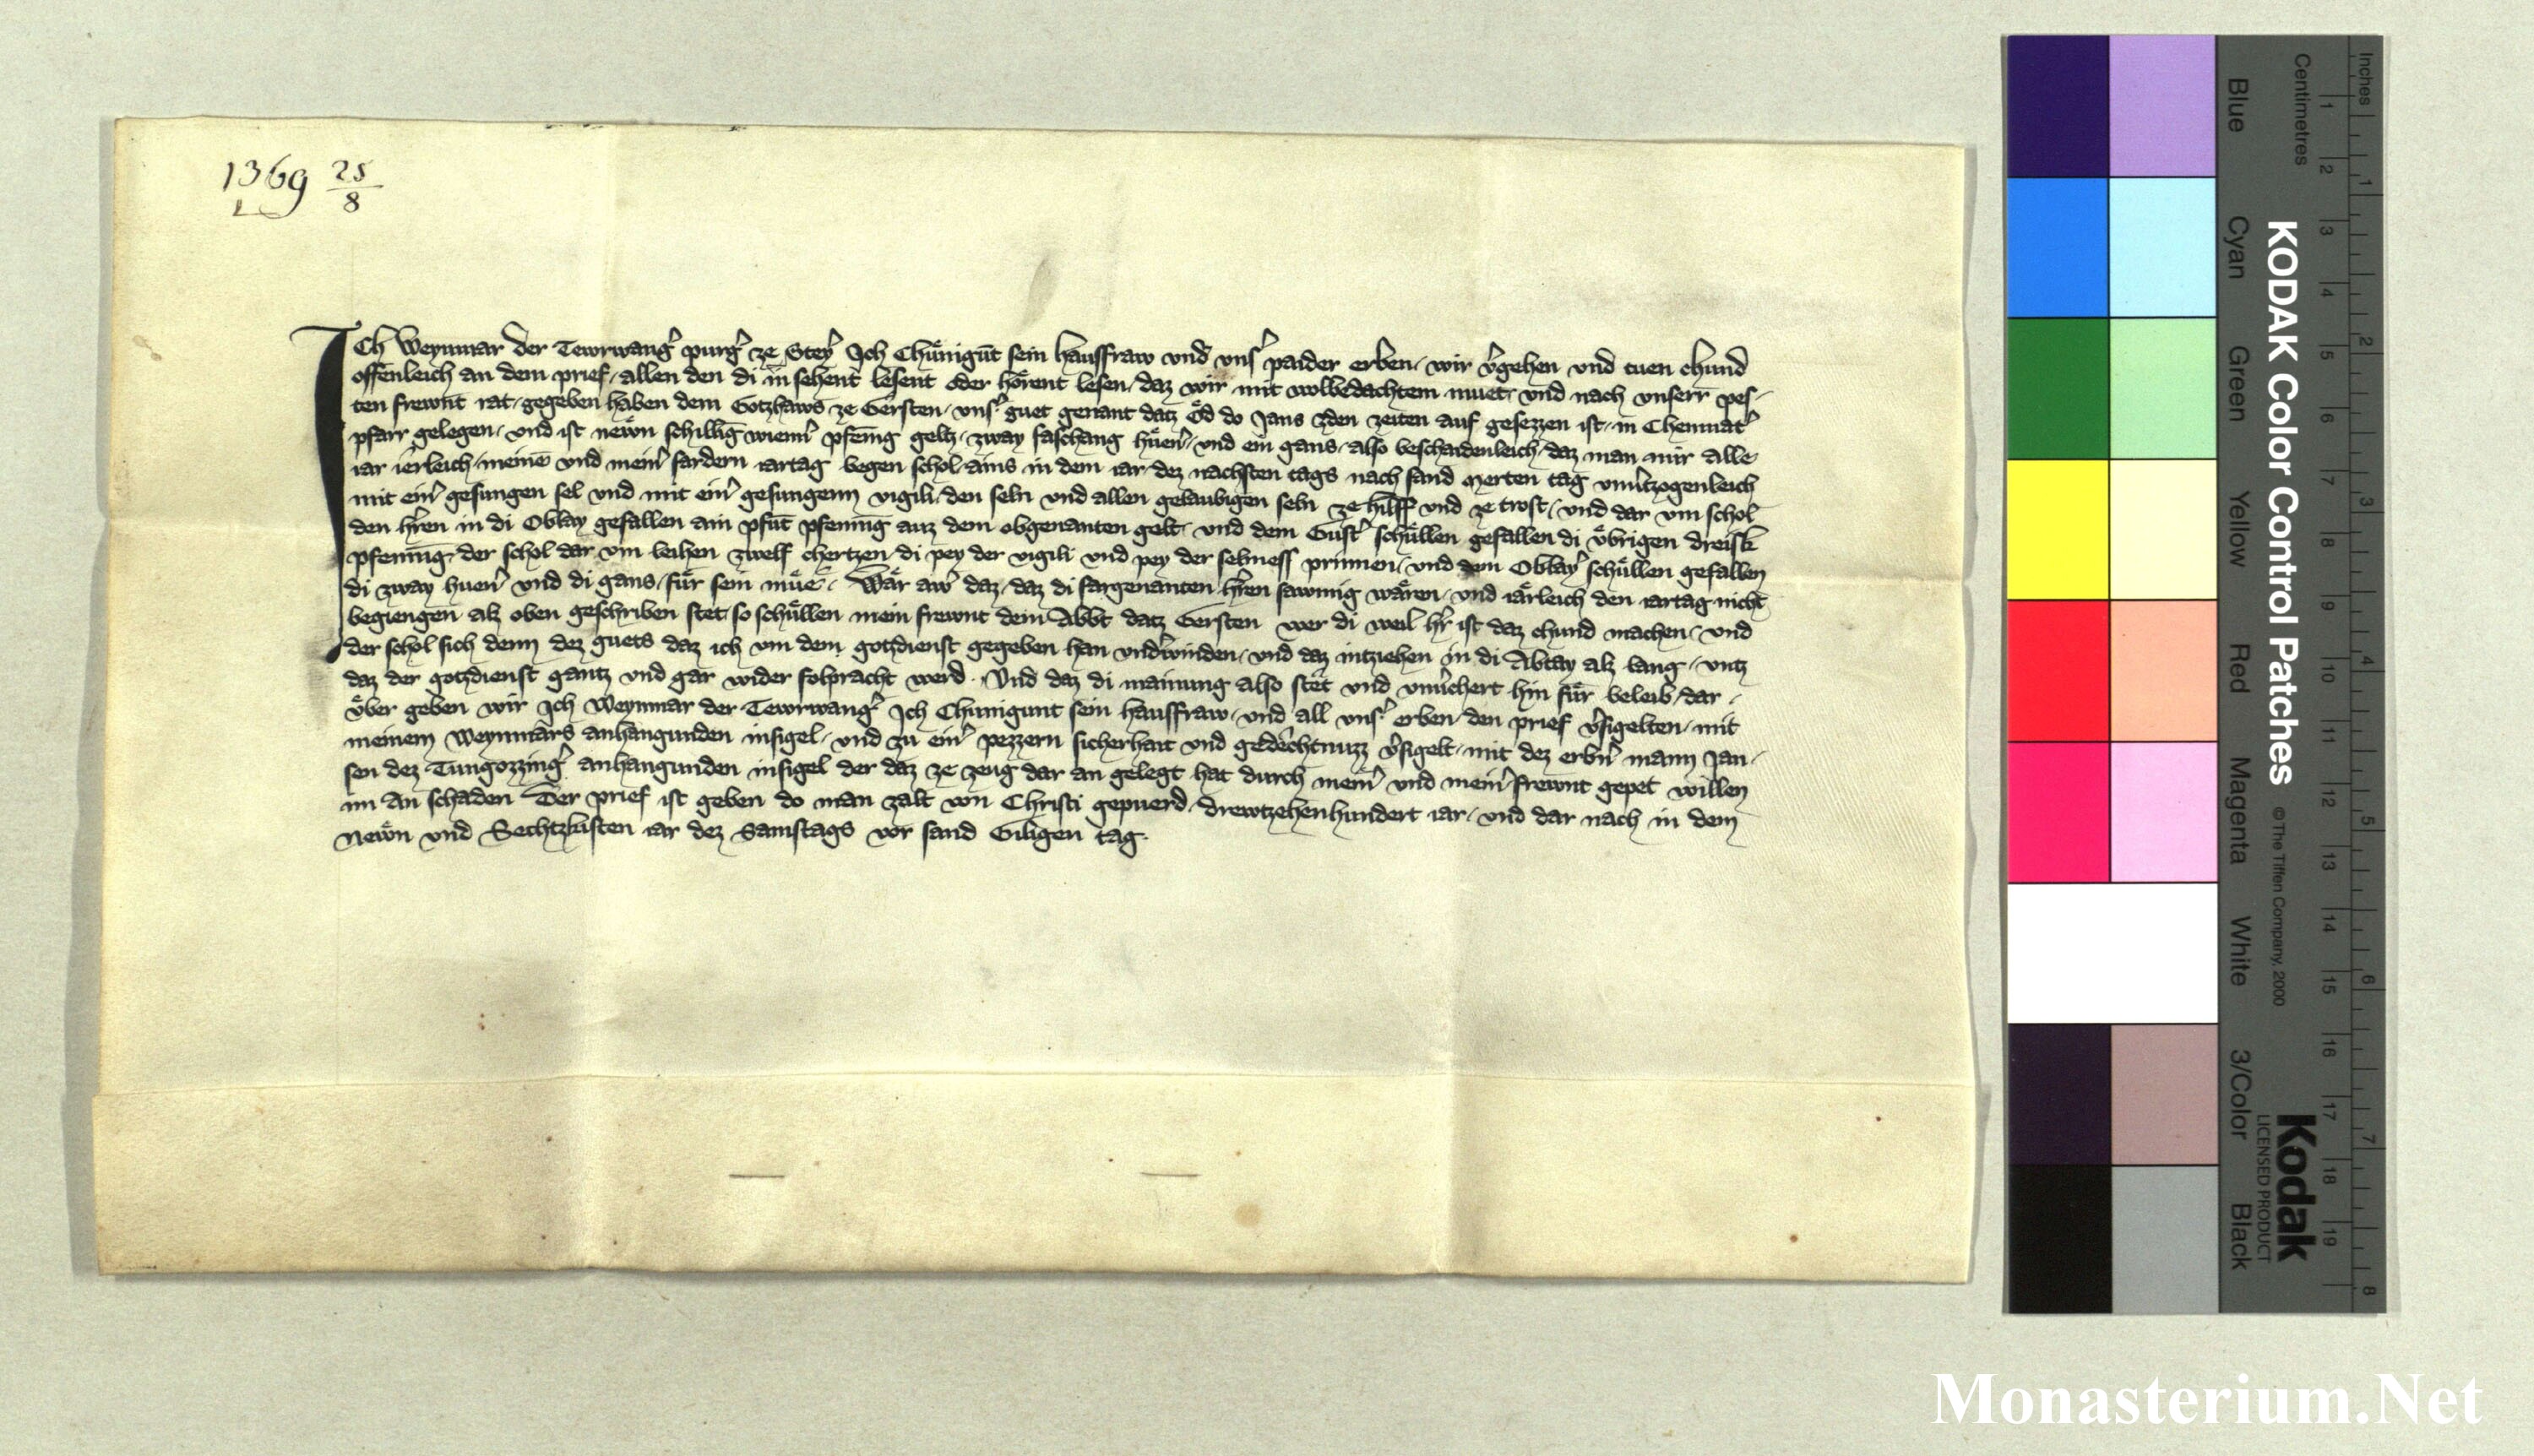 1369 25/8
ICh Weynmar der Tewrwangʼ purgʼ ze Steyʼ Ich Chünigūt sein hausfraw vnd vnsʼ paider erben / wir vʼgehen vnd tuen chund
offenleich an dem prief / allen den di in sehent lesent oder hörent lesen / daz wir mit wolbedachtem muet / vnd nach vnserr pes-
ten frewnt rat / gegeben haben dem Gotzhaws ze Gersten / vnsʼ guet genant datz Öd do Jans zden zeiten auf gesezzen ist / in Chemnatʼ
pfarr gelegen / vnd ist newn schillīg wiennʼ pfenīg geltz / zway faschang hüenʼ / vnd ein gans / also beschaidenleich / daz man mir alle
iar ierleich / meinē vnd meinʼ fardern iartag begen schol / ains in dem iar / dez nachsten tags nach sand Merten tag vnuʼtzogenleich
mit einʼ gesungen sel vnd mit einʼ gesungenn vigili / den seln vnd allen gelaubigen seln ze hilff vnd ze trost / vnd dar vm schol
den hʼren in di Oblay gefallen ain pfūt pfenīng auz dem obgenanten gelt / vnd dem Gustʼ schüllen gefallen di vbrigen dreisk
pfenīng / der schol dar vm leihen zwelf chertzen / di pey der vigili vnd pey der selmess prinnen / vnd dem Oblayʼ schüllen gefallen
di zway huenʼ vnd di gans / für sein müe / Wär awʼ daz / daz di fargenanten hʼren sawmig wären / vnd iärleich den iartag nicht
begiengen alz oben geschriben stet / so schüllen mein frewnt dem Abbt datz Gersten wer di weil hʼr ist daz chund machen / vnd
der schol sich denn dez guets daz ich vm dem gotzdienst gegeben han vndʼwinden / vnd daz intziehen in di Abtay alz lang / vntz
daz der gotzdienst gantz vnd gar wider folpracht werd / Vnd daz di mainung also stet vnd vnuʼchert hin für beleib / dar /
vber geben wir Ich Weynmar der Tewrwangʼ Ich Chunigunt sein hausfraw / vnd all vnsʼ erben / den prief vʼsigelten / mit
meinem Weynmars anhangunden insigel / vnd zu einʼ pezzern sicherhait vnd gedechtnuzz vʼsigelt / mit dez erbnʼ mann Jan-
sen dez Tungozzingʼ anhangunden insigel der daz ze zeug dar an gelegt hat durch meinʼ vnd meinʼ frewnt gepet willen
im an schaden Der prief ist geben do man zalt von Christi gepuerd / drewtzehenhundert iar / vnd dar nach in dem
Newn vnd Sechtzkisten iar dez Samstags vor sand Giligen tag.
KODAK Color Control Patches
© The Tiffen Company, 2000
Kodak
LICENSED PRODUCT
Inches 1 2 3 4 5 6 7 8
Centimetres 1 2 3 4 5 6 7 8 9 10 11 12 13 14 15 16 17 18 19
Blue Cyan Green Yellow Red Magenta White 3/Color Black
Monasterium.Net